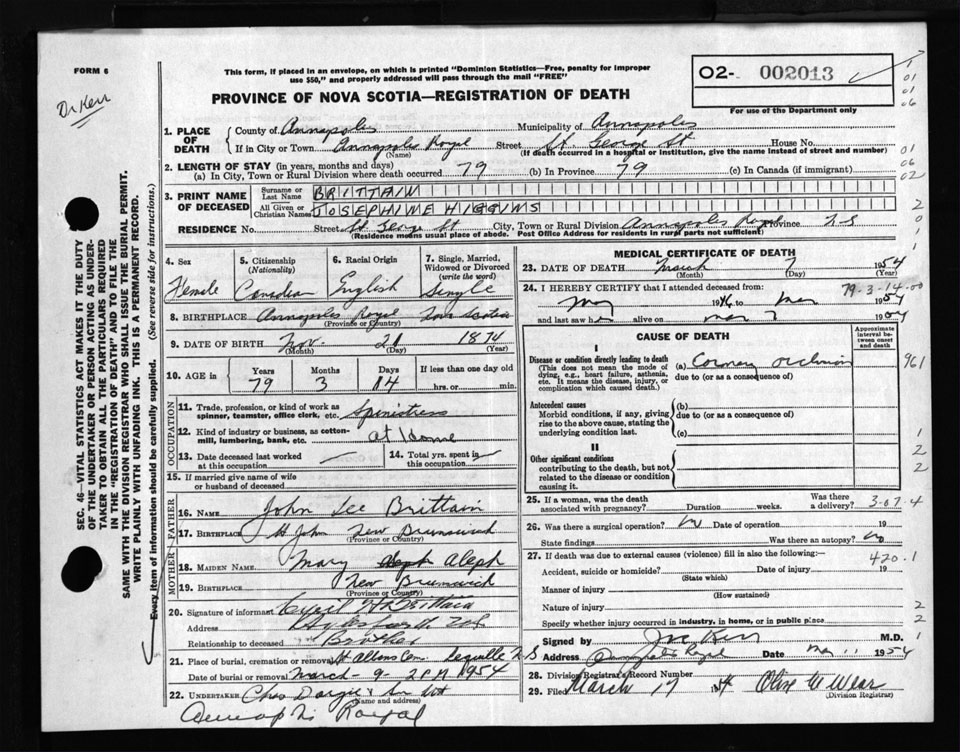 FORM 6
Dr Kerr
This form, if placed in an envelope, on which is printed "Dominion Statistics—Free, penalty for improper
use $50," and properly addressed will pass through the mail "FREE"
O2- 002013
For use of the Department only
PROVINCE OF NOVA SCOTIA—REGISTRATION OF DEATH
1. PLACE OF DEATH
County of Annapolis Municipality of Annapolis
If in City or Town Annapolis Royal Street St. George St House No.
(Name) (If death occurred in a hospital or institution, give the name instead of street and number)
2. LENGTH OF STAY (in years, months and days)
(a) In City, Town or Rural Division where death occurred 79 (b) In Province 79 (c) In Canada (if immigrant)
3. PRINT NAME OF DECEASED
Surname or Last Name BRITTAIN
All Given or Christian Names JOSEPHINE HIGGINS
RESIDENCE No. Street St George St City, Town or Rural Division Annapolis Royal Province N-S
(Residence means usual place of abode. Post Office Address for residents in rural parts not sufficient)
4. Sex
Female
5. Citizenship
(Nationality)
Canadian
6. Racial Origin
English
7. Single, Married,
Widowed or Divorced
(write the word)
Single
8. BIRTHPLACE Annapolis Royal Nova Scotia
(Province or Country)
9. DATE OF BIRTH Nov. 21 1874
(Month) (Day) (Year)
10. AGE in Years Months Days If less than one day old
79 3 14 hrs. or min.
OCCUPATION
11. Trade, profession, or kind of work as
spinner, teamster, office clerk, etc. Spinstress
12. Kind of industry or business, as cotton-
mill, lumbering, bank, etc. at Home
13. Date deceased last worked
at this occupation
14. Total yrs. spent in
this occupation
15. If married give name of wife
or husband of deceased
FATHER
16. NAME John Lee Brittain
17. BIRTHPLACE St John New Brunswick
(Province or Country)
MOTHER
18. MAIDEN NAME Mary Aleph
19. BIRTHPLACE New Brunswick
(Province or Country)
20. Signature of informant Cyril Brittain
Address
Relationship to deceased Brother
21. Place of burial, cremation or removal St Albans Cem. Lequille N-S
Date of burial or removal March - 9 - 2 PM 1954
22. UNDERTAKER Chas Dargie & Son
(Name and address)
Annapolis Royal
MEDICAL CERTIFICATE OF DEATH
23. DATE OF DEATH March 7 1954
(Month) (Day) (Year)
24. I HEREBY CERTIFY that I attended deceased from:
79-3-14-00
May 1946 to Mar 1954
and last saw her alive on Mar 7 1954
CAUSE OF DEATH
Approximate
interval be-
tween onset
and death
I
Disease or condition directly leading to death
(This does not mean the mode of
dying, e.g., heart failure, asthenia,
etc. It means the disease, injury, or
complication which caused death.)
(a) Coronary occlusion
due to (or as a consequence of)
Antecedent causes
Morbid conditions, if any, giving
rise to the above cause, stating the
underlying condition last.
(b)
due to (or as a consequence of)
(c)
II
Other significant conditions
contributing to the death, but not
related to the disease or condition
causing it.
25. If a woman, was the death
associated with pregnancy? Duration weeks. Was there
a delivery?
26. Was there a surgical operation? No Date of operation 19
State findings Was there an autopsy? No
27. If death was due to external causes (violence) fill in also the following:—
420.1
Accident, suicide or homicide? Date of injury 19
(State which)
Manner of injury
(How sustained)
Nature of injury
Specify whether injury occurred in industry, in home, or in public place
Signed by Kerr M.D.
Address Annapolis Royal Date Mar 11 1954
28. Division Registrar's Record Number
29. Filed March 17 1954
(Division Registrar)
SEC. 46—VITAL STATISTICS ACT MAKES IT THE DUTY
OF THE UNDERTAKER OR PERSON ACTING AS UNDER-
TAKER TO OBTAIN ALL THE PARTICULARS REQUIRED
IN THE "REGISTRATION OF DEATH" AND TO FILE THE
SAME WITH THE DIVISION REGISTRAR WHO SHALL ISSUE THE BURIAL PERMIT.
WRITE PLAINLY WITH UNFADING INK. THIS IS A PERMANENT RECORD.
Every item of information should be carefully supplied. (See reverse side for instructions.)